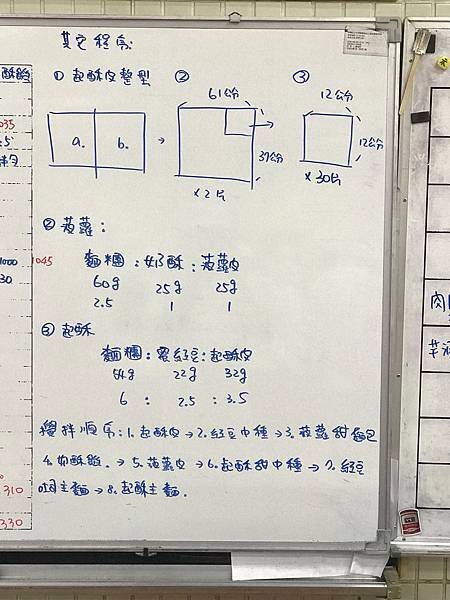 其它程序:
酥餡
① 起酥皮整型 ② ③
61公分
12公分
a. b. →
37公分
12公分
035
.5
×2片
×30片
② 菠蘿:
1000 1045
30
麵糰:奶酥:菠蘿皮
60g 25g 25g
2.5 1 1
③ 起酥
麵糰:蜜紅豆:起酥皮
54g 22g 32g
6 : 2.5 : 3.5
攪拌順序:1.起酥皮→2.紅豆中種→3.菠蘿甜麵包
4.奶酥餡.→5.菠蘿皮→6.起酥甜中種→7.紅豆
主麵→8.起酥主麵.
310
330
肉